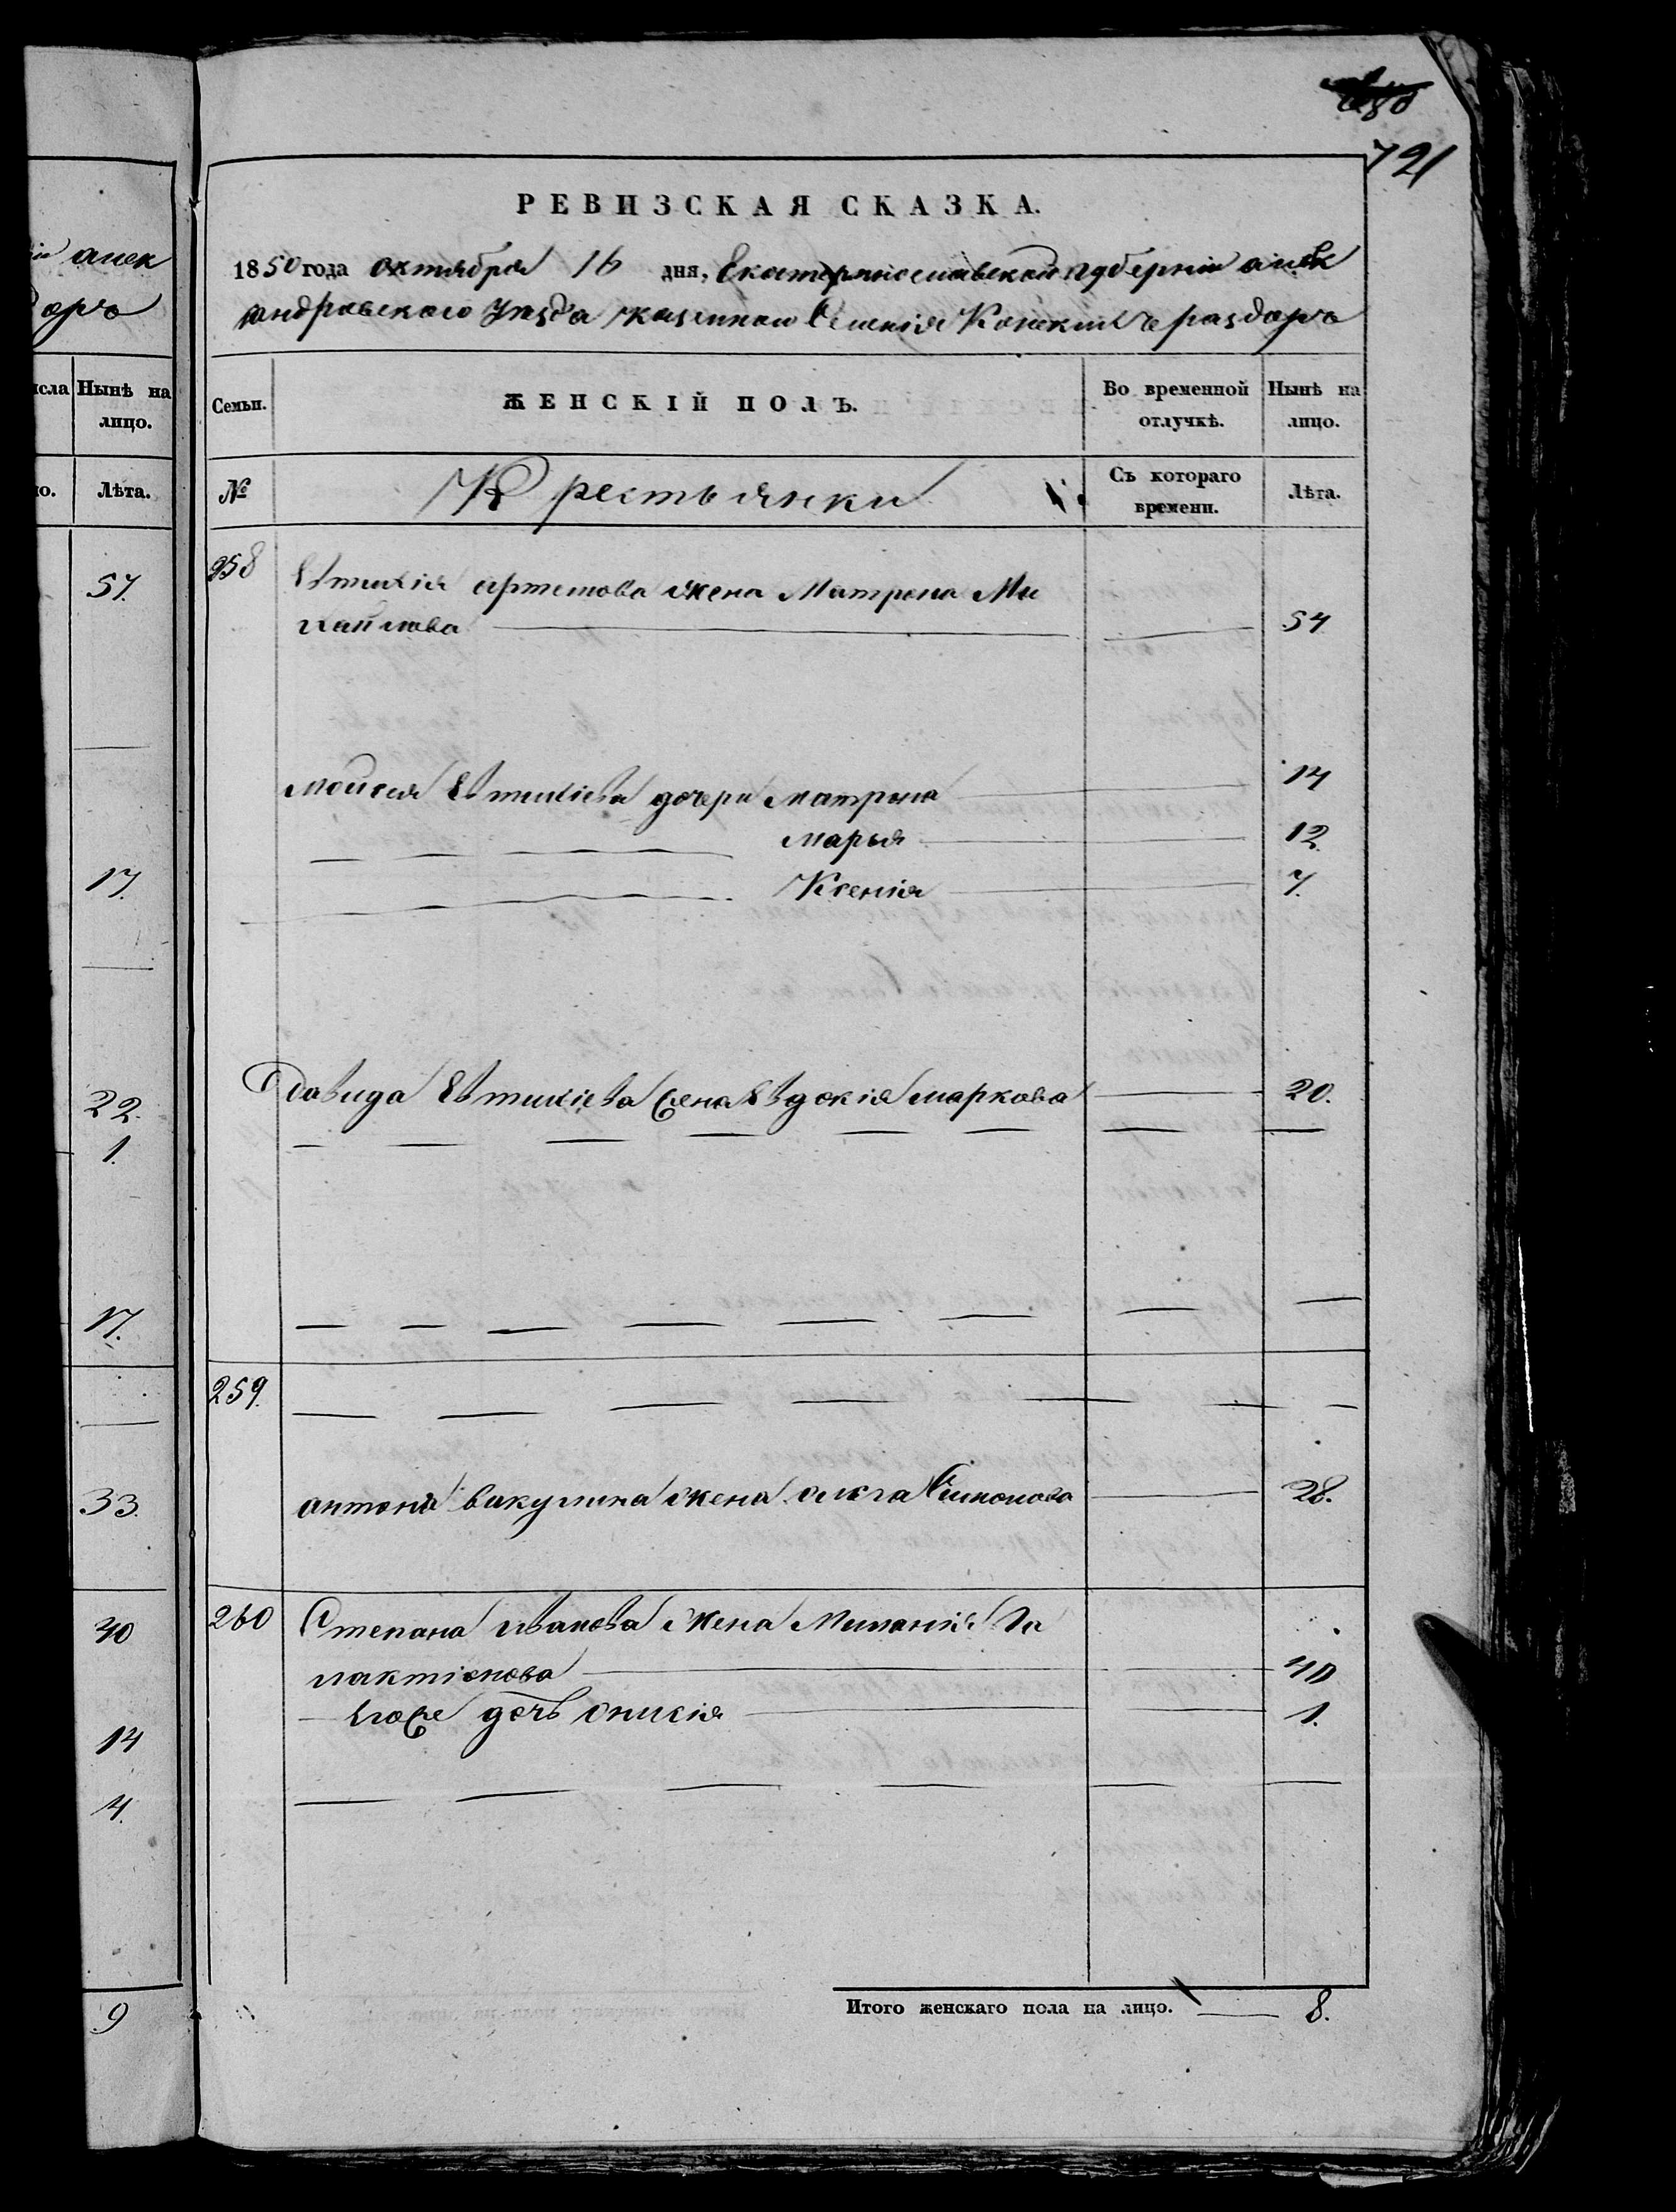 721
ій алек
доръ
исла Нынѣ на
лицо.
ло. Лѣта.
57.
17.
22.
1.
17.
33.
40
14
4.
9
РЕВИЗСКАЯ СКАЗКА.
1850 года октября 16 дня, Екатеринославской губерніи алек
сандровского уезда казенного селенія Конскихъ раздоръ
Семьи. ЖЕНСКІЙ ПОЛЪ. Во временной отлучкѣ. Нынѣ на лицо.
№ Крестьянки Съ котораго времени. Лѣта.
258 Евтихія артемова жена Матрена Ми
хайлова 54
Мойсея Евтихіева дочери Матрена 14
Марья 12
Ксенія 7.
Давида Евтихіева жена Евдокія маркова 20.
259.
антона викулина жена олга Симонова 28.
260 Степана иванова жена Миланія Га
лактіонова 40
Егоже дочь 1.
Итого женскаго пола на лицо. 8.